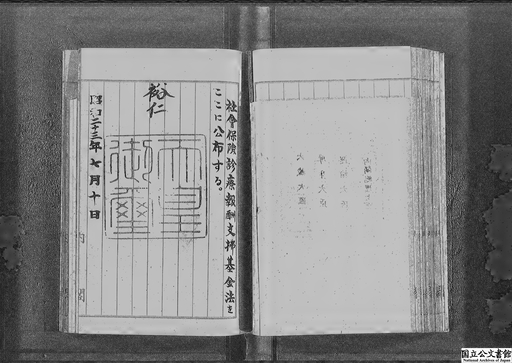 社會保険診療報酬支拂基金法を
ここに公布する。
裕仁
天皇御璽
昭和二十三年七月十日
内閣
国立公文書館
National Archives of Japan